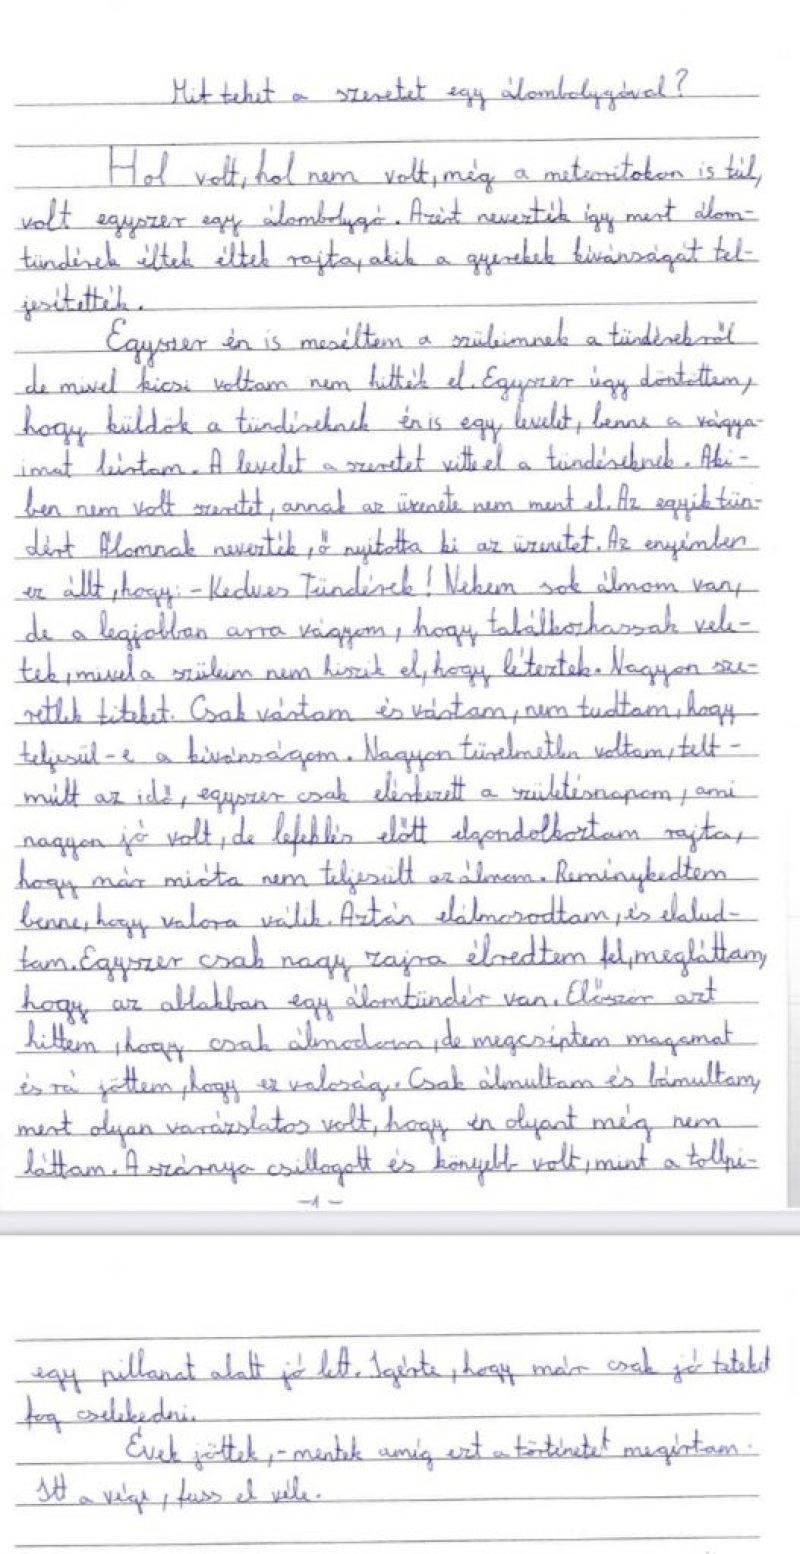 Mit tehet a szeretet egy álombolygóval?
Hol volt, hol nem volt, még a meteoritokon is túl,
volt egyszer egy álombolygó. Azért nevezték így mert álom-
tündérek éltek éltek rajta, akik a gyerekek kívánságát tel-
jesítették.
Egyszer én is meséltem a szüleimnek a tündérekről
de mivel kicsi voltam nem hitték el. Egyszer úgy döntöttem,
hogy küldök a tündéreknek én is egy levelet, benne a vágya-
imat leírtam. A levelet a szeretet vitte el a tündéreknek. Aki-
ben nem volt szeretet, annak az üzenete nem ment el. Az egyik tün-
dért Álomnak nevezték, ő nyitotta ki az üzenetet. Az enyémben
ez állt, hogy: - Kedves Tündérek! Nekem sok álmom van,
de a legjobban arra vágyom, hogy találkozhassak vele-
tek, mivel a szüleim nem hiszik el, hogy léteztek. Nagyon sze-
retlek titeket. Csak vártam és vártam, nem tudtam, hogy
teljesül-e a kívánságom. Nagyon türelmetlen voltam, telt-
múlt az idő, egyszer csak elérkezett a születésnapom, ami
nagyon jó volt, de lefekvés előtt elgondolkoztam rajta,
hogy már mióta nem teljesült az álmom. Reménykedtem
benne, hogy valora válik. Aztán elálmosodtam, és elalud-
tam. Egyszer csak nagy zajra ébredtem fel, megláttam,
hogy az ablakban egy álomtündér van. Először azt
hittem, hogy csak álmodom, de megcsíptem magamat
és rá jöttem, hogy ez valoság. Csak álmultam és bámultam,
mert olyan varázslatos volt, hogy én olyant még nem
láttam. A szárnya csillogott és könyebb volt, mint a tollpi-
-1-
egy pillanat alatt jó lett. Igérte, hogy már csak jó tetteket
fog cselekedni.
Évek jöttek, -mentek amíg ezt a történetet megírtam.
Itt a vége, fuss el véle.